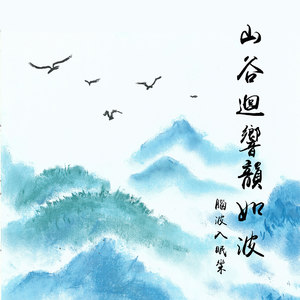 山谷迴響韻如波
腦波入眠集